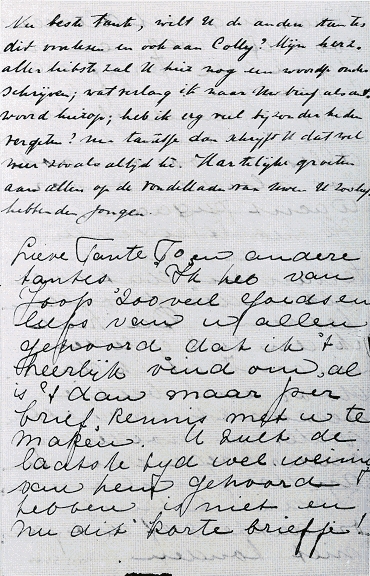 Nu beste tante, wilt U de andere tantes
dit voorlezen en ook aan Colly? Mijn herz-
allerliefste zal U hier nog een woordje onder
schrijven; wat verlang ik naar Uw brief als ant-
woord hierop; heb ik erg veel bijzonderheden
vergeten? nu tantetje dan schrijft U dat wel
weer zooals altijd hè. Hartelijke groeten
aan allen op de Vondellaan van Uwen U zoo lief
hebbenden jongen
Lieve Tante To en andere
tantes Ik heb van
Joop zooveel goeds en
liefs van u allen
gehoord dat ik 't
heerlijk vind om, al
is 't dan maar per
brief, kennis met u te
maken. U zult de
laatste tyd wel weinig
van hem gehoord
hebben is niet en
nu dit korte briefje!